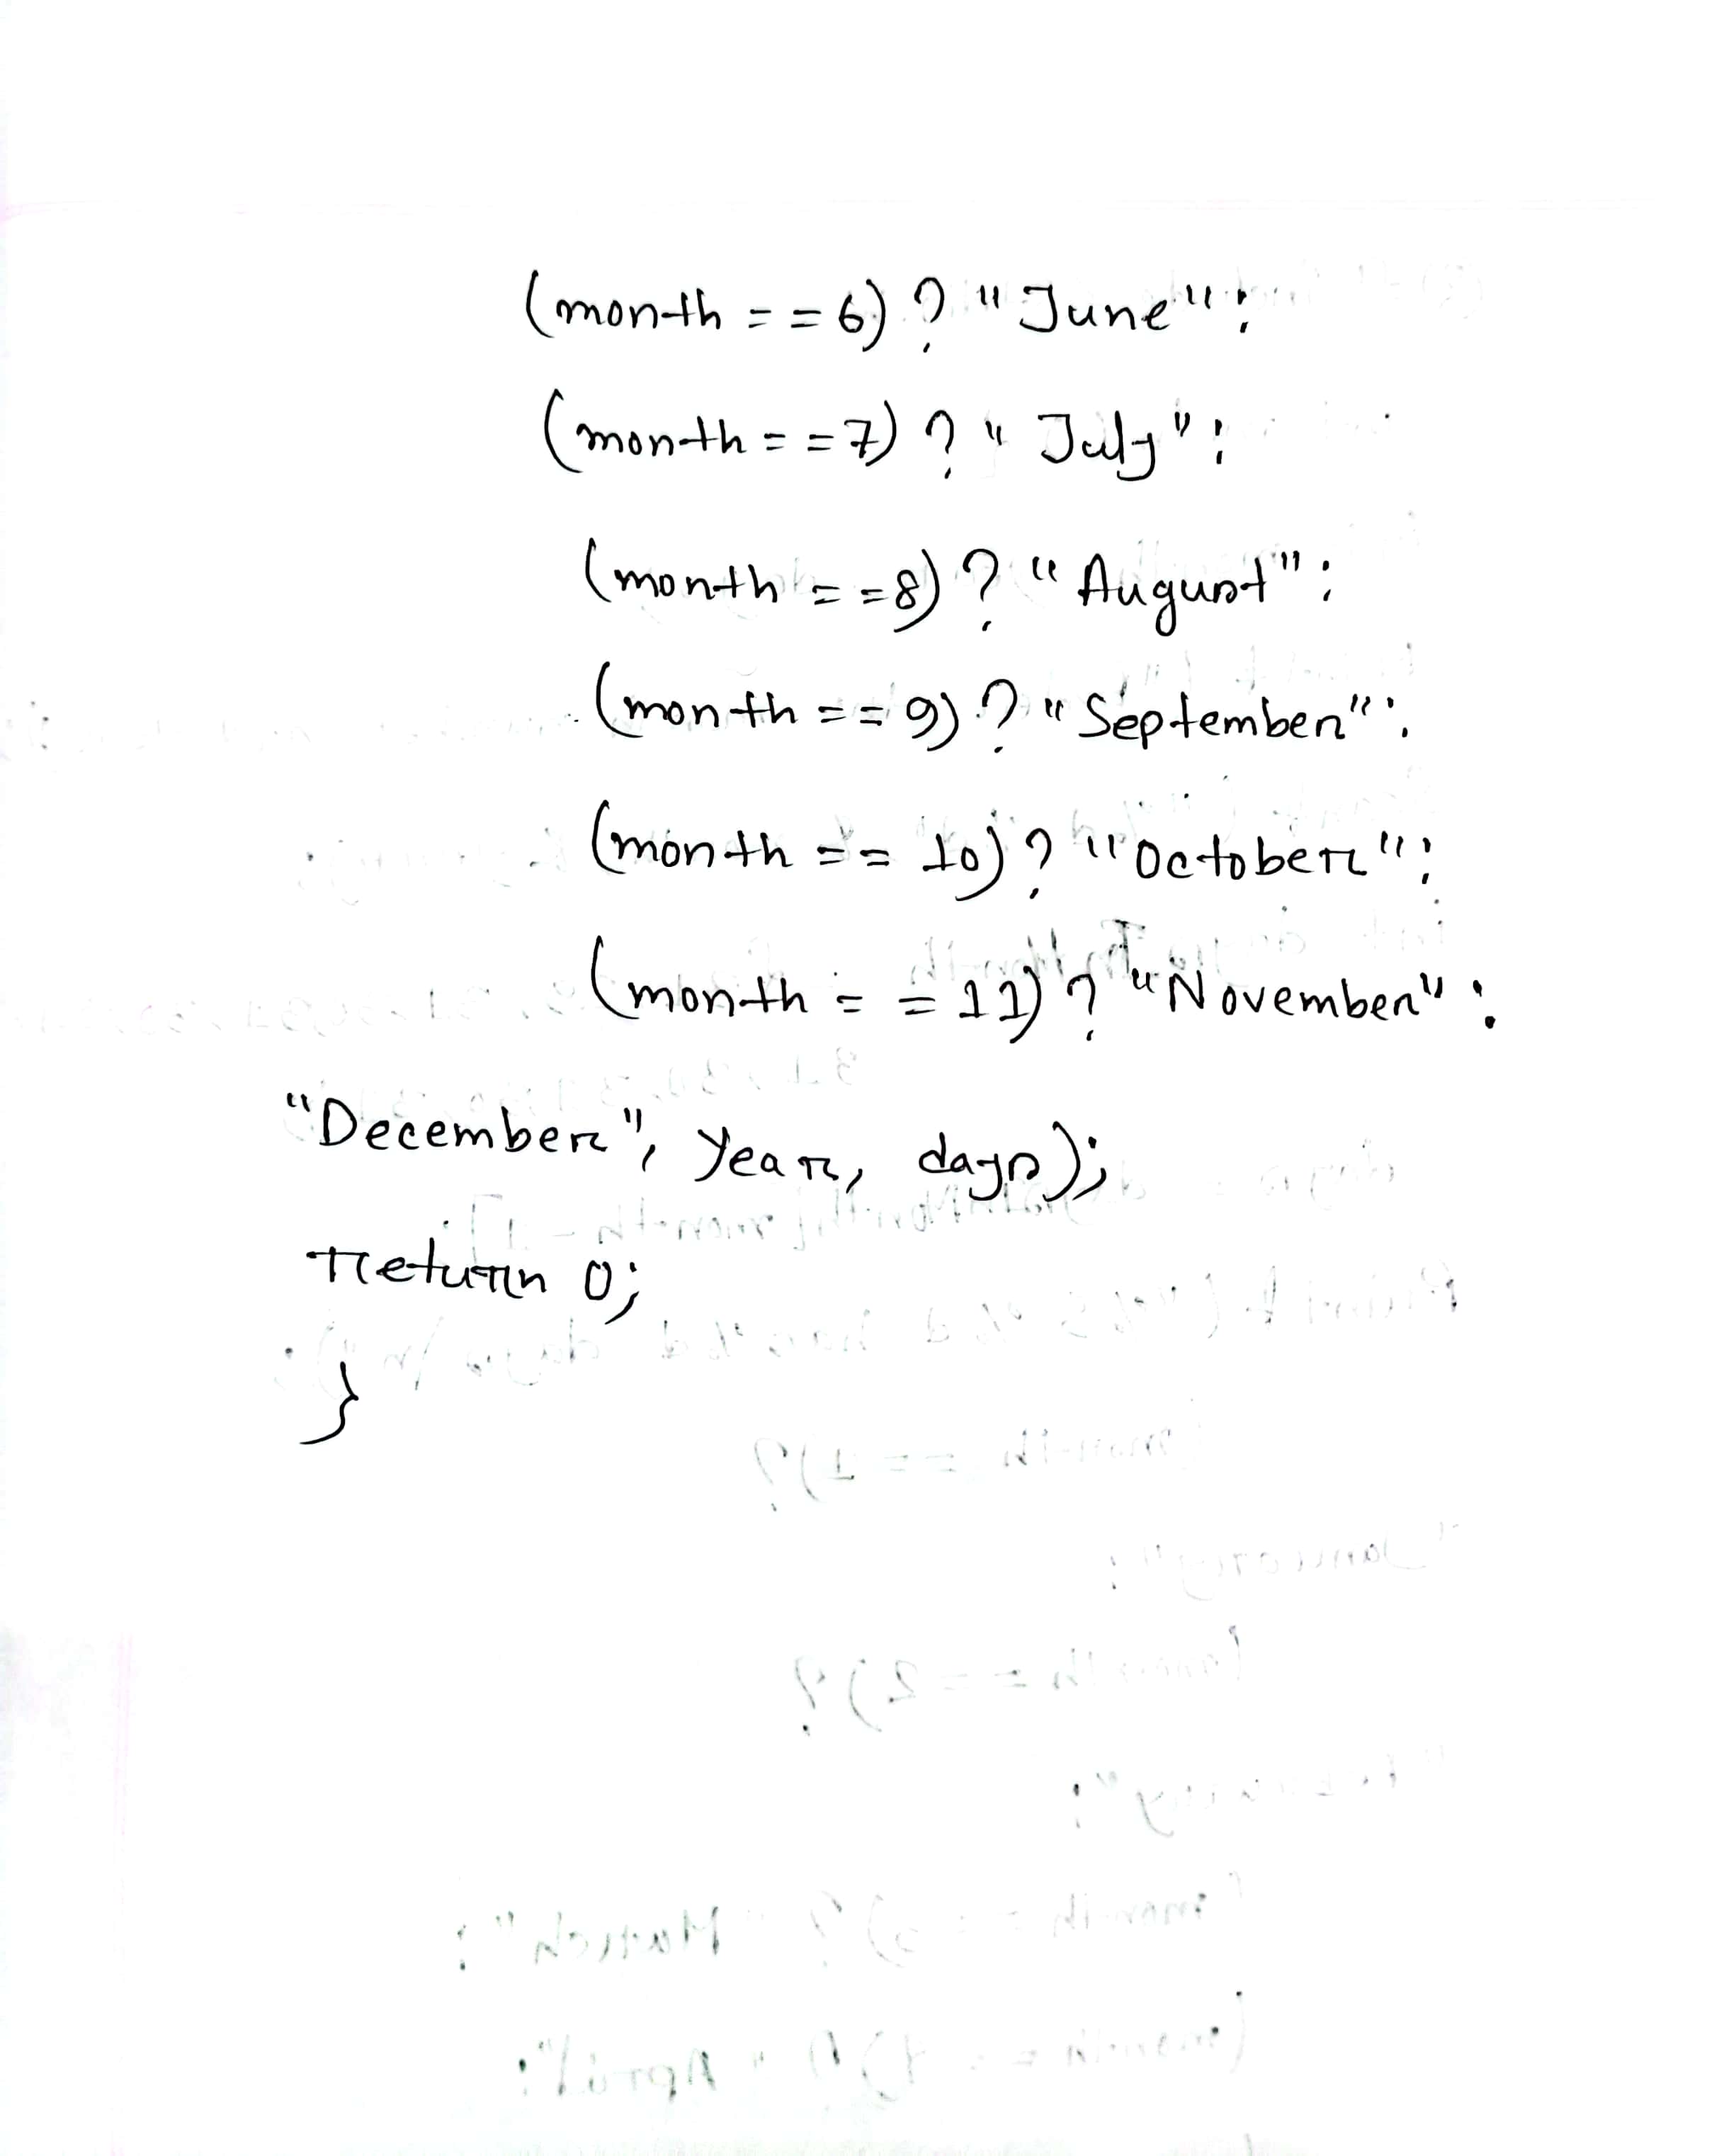 (month == 6) ? "June" :
(month == 7) ? "July" :
(month == 8) ? "August" :
(month == 9) ? "September" :
(month == 10) ? "October" :
(month == 11) ? "November" :
"December", year, days);
return 0;
}